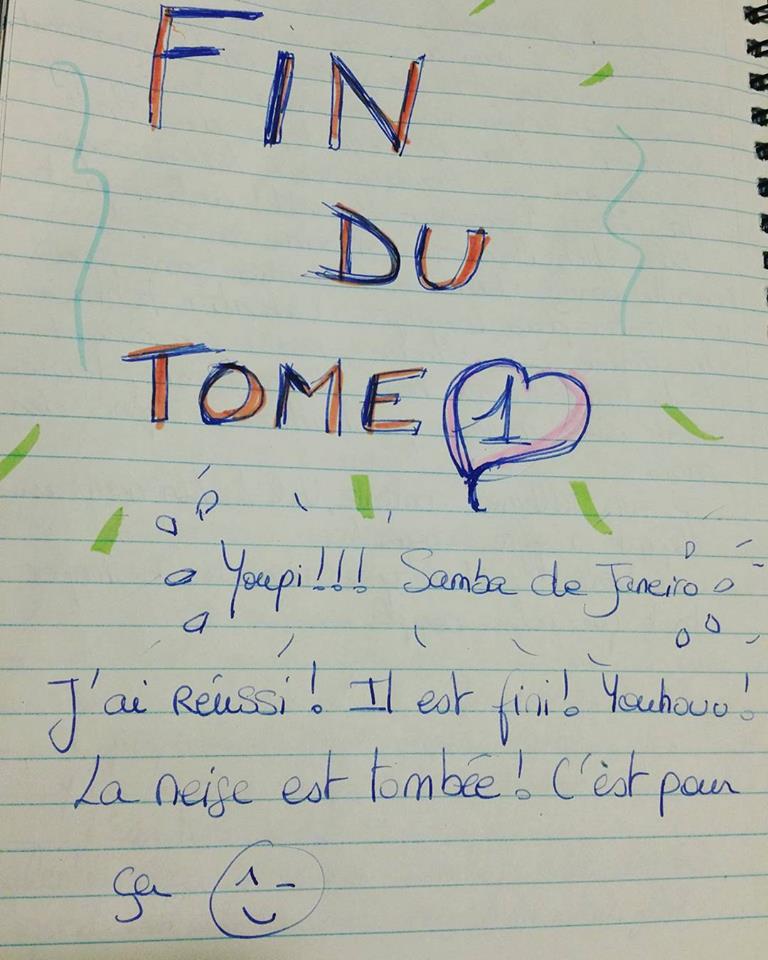 FIN
DU
TOME 1
Youpi!!! Samba de Janeiro
J'ai Réussi! Il est fini! Youhouu!
La neige est tombée! C'est pour
ça